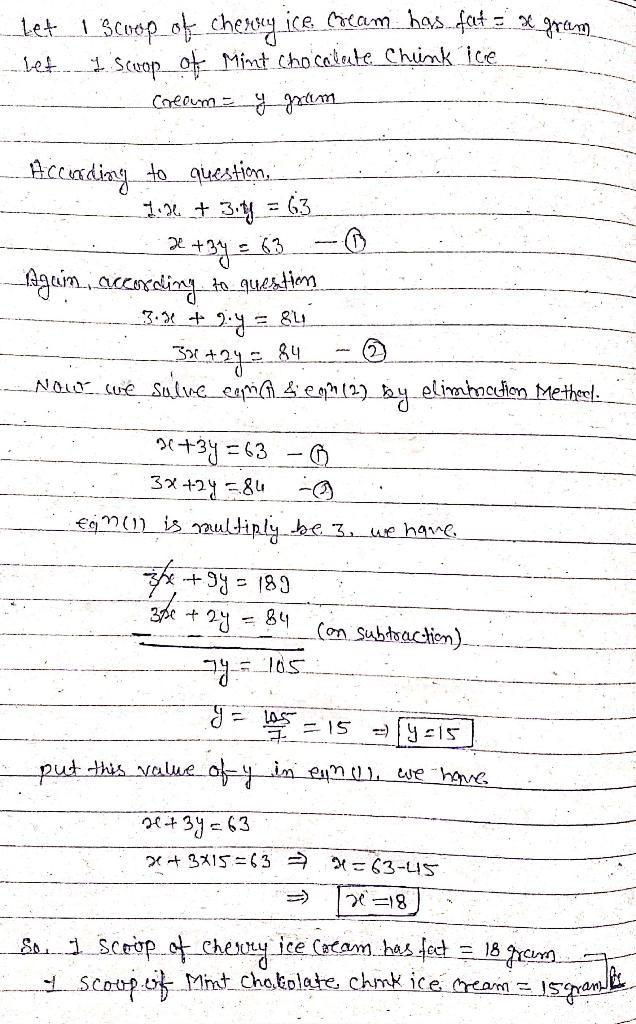 Let 1 scoop of cherry ice cream has fat = x gram
Let 1 scoop of Mint chocalate Chunk ice
cream = y gram
According to question,
1.x + 3.y = 63
x + 3y = 63 — ①
Again, according to question
3.x + 2.y = 84
3x + 2y = 84 — ②
Now we solve eqn(1) & eqn(2) by elimination Method.
x + 3y = 63 — ①
3x + 2y = 84 — ②
eqn(1) is multiply be 3, we have.
3x + 9y = 189
3x + 2y = 84 (on subtraction)
7y = 105
y = 105/7 = 15 ⇒ y = 15
put this value of y in eqn(1), we have
x + 3y = 63
x + 3×15 = 63 ⇒ x = 63-45
⇒ x = 18
So, 1 scoop of cherry ice cream has fat = 18 gram
1 scoop of Mint chokolate chnk ice cream = 15 gram